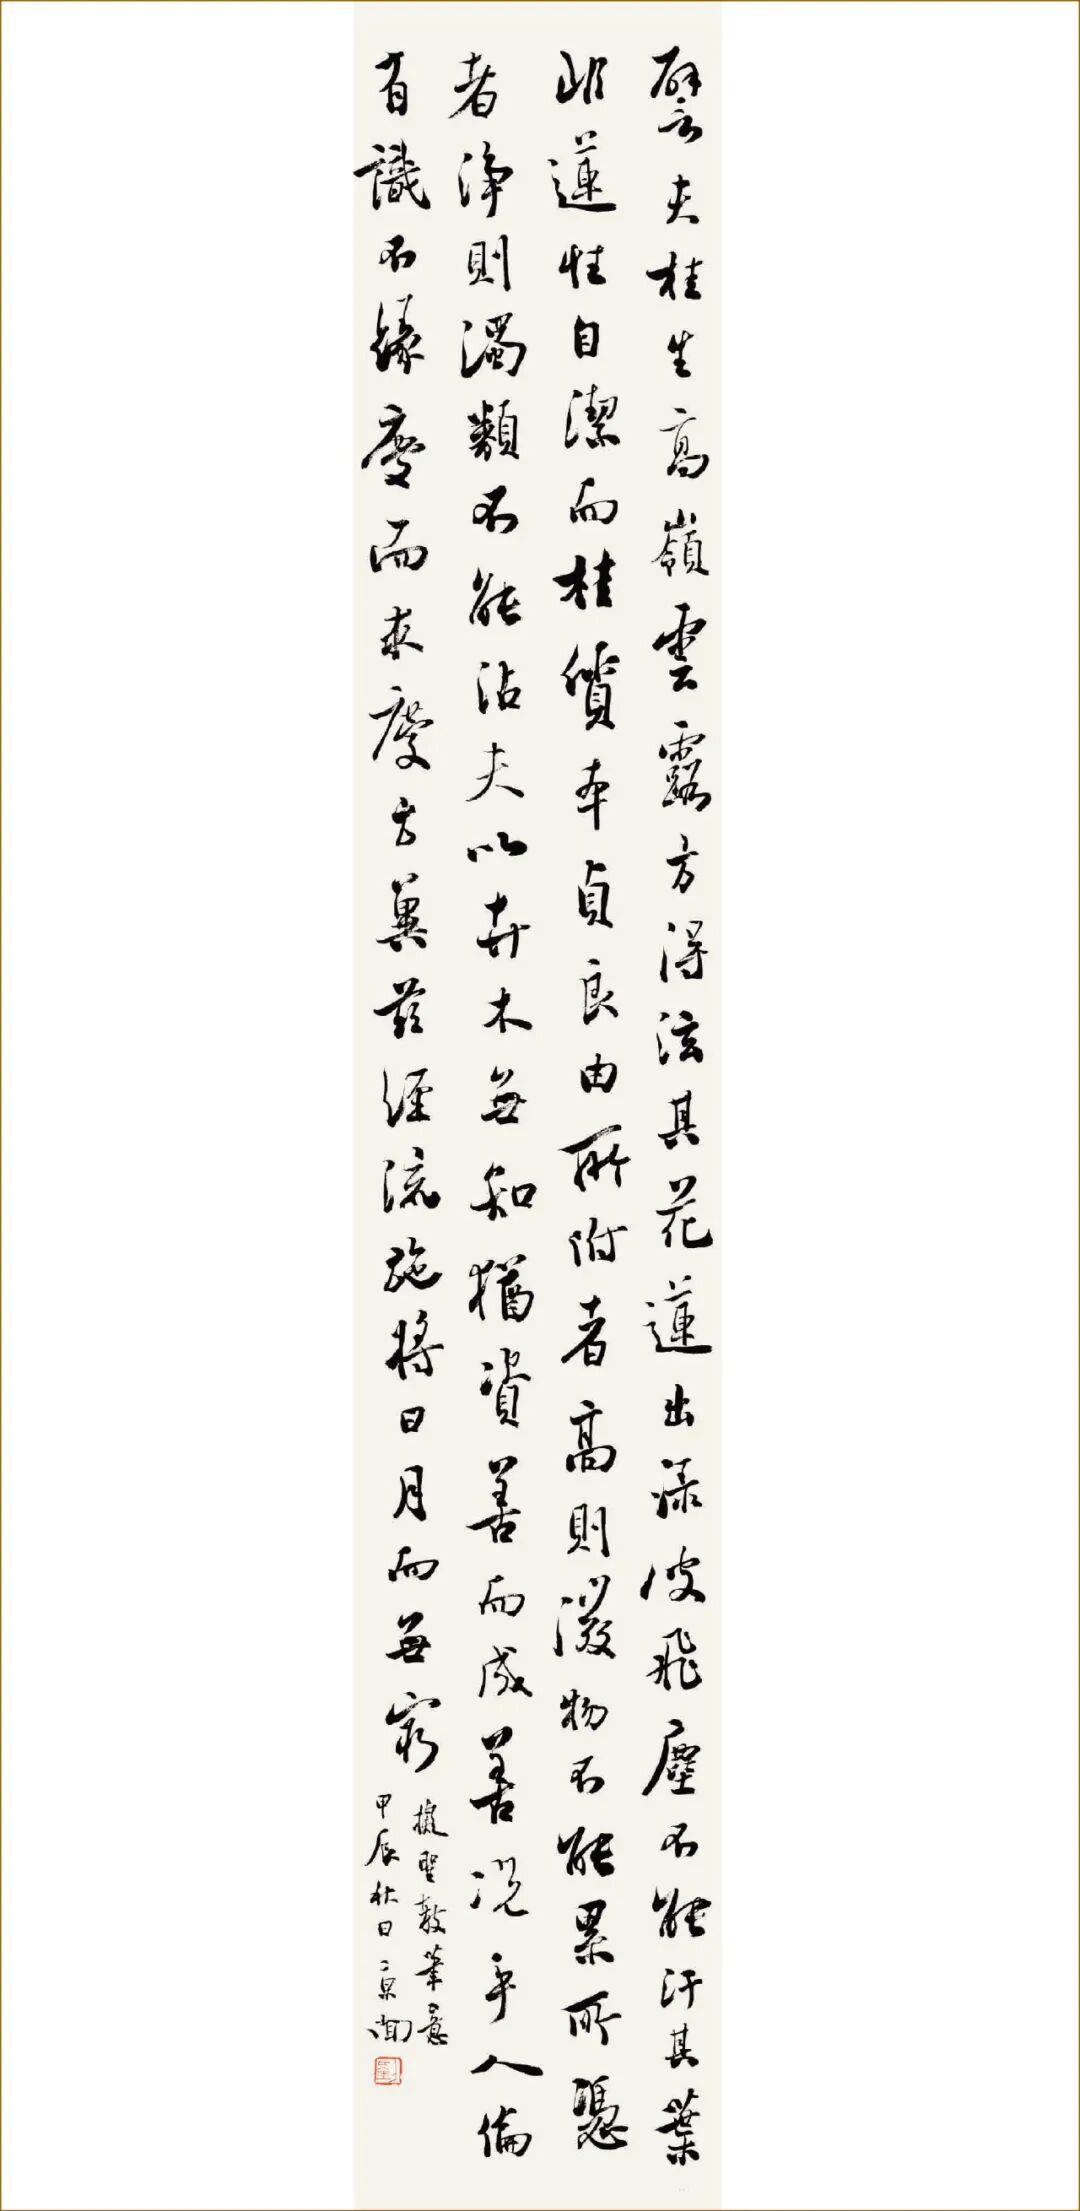 譬夫桂生高嶺雲露方得泫其花蓮出淥波飛塵不能汙其葉
非蓮性自潔而桂質本貞良由所附者高則微物不能累所憑
者淨則濁類不能沾夫以卉木無知猶資善而成善況乎人倫
有識不緣慶而求慶方冀茲經流施將日月而無窮
擬聖教筆意
甲辰秋日